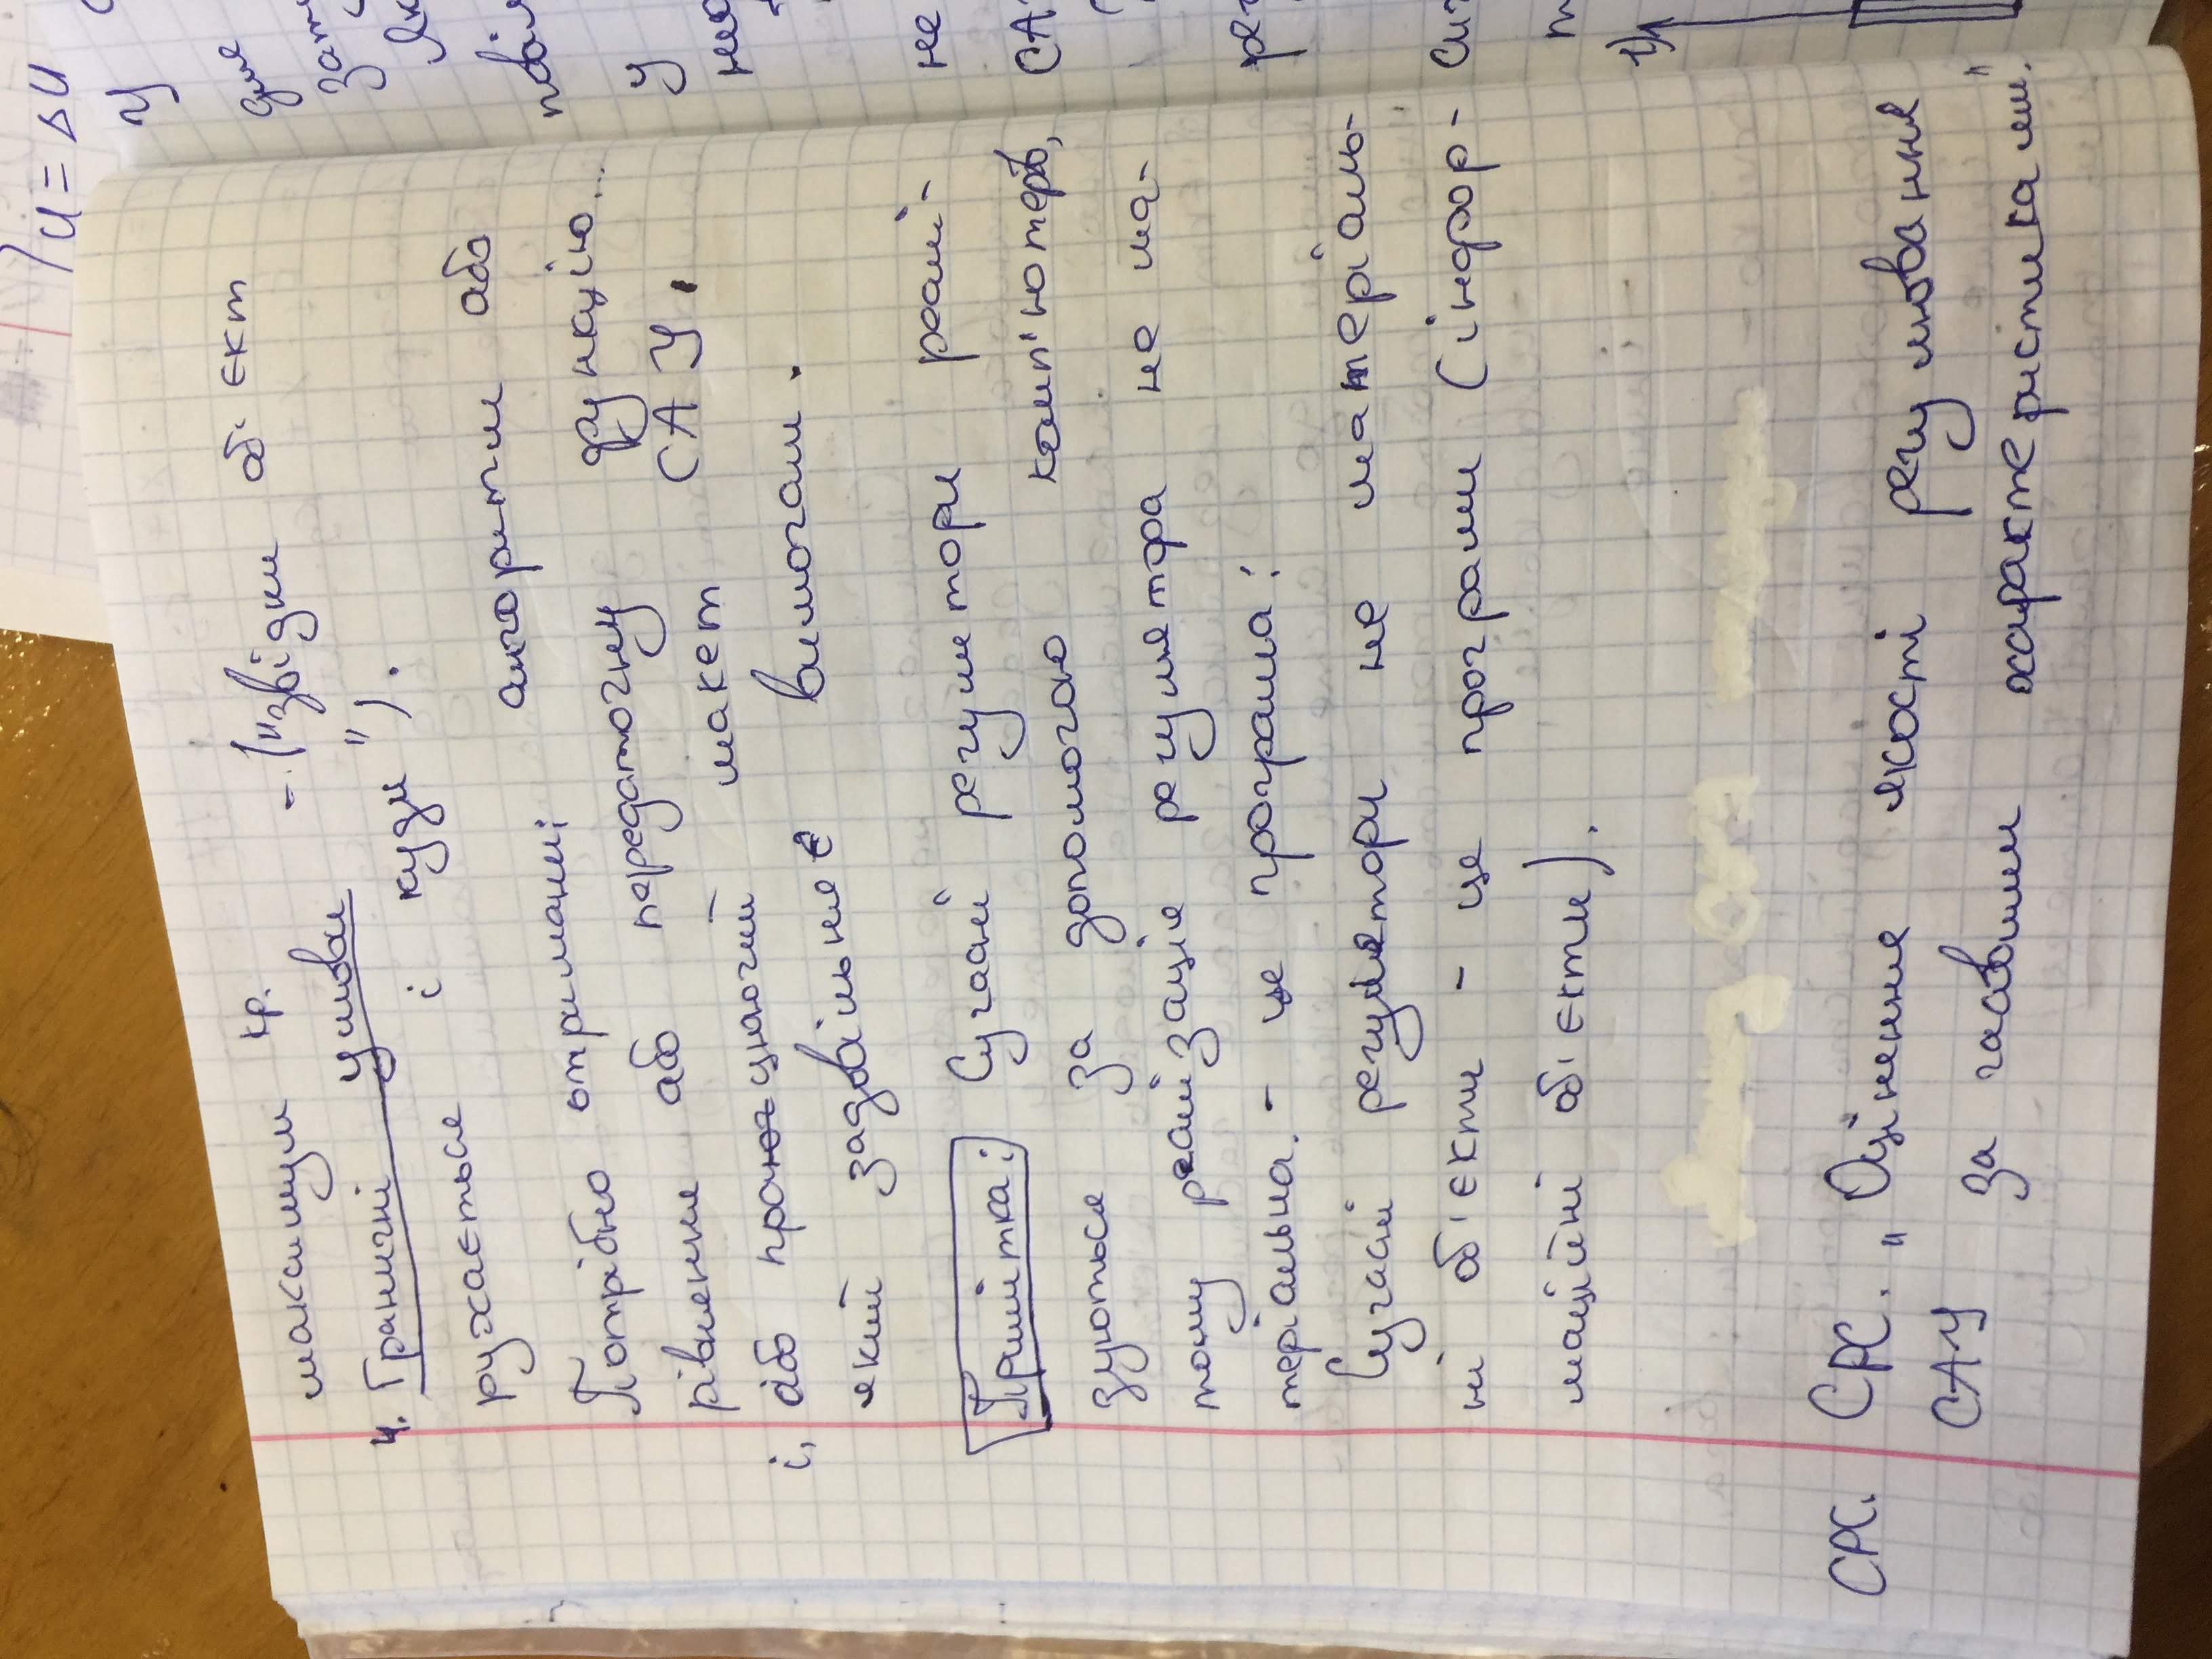 максимум кр.
4. Граничні умови - ("звідки об'єкт
рухається і куди").
Потрібно отримани: алгоритм або
рівняння або передаточну функцію...
і, або працюючий макет САУ,
який задовільняє вимогам.
Примітка: Сучасні регулятори реалі-
зуються за допомогою комп'ютерів,
тому реалізація регулятора не ма-
теріальна. - це програма!
Сучасні регулятори не матеріаль-
ні об'єкти - це програми (інфор-
маційні об'єкти).
СРС. СРС. „Оцінення якості регулювання
САУ за часовими характеристиками."
u = ΔU
У
для
У
не
СА
рег
1)